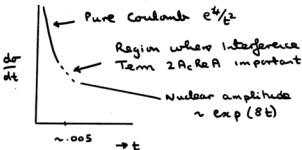 Pure Coulomb e⁴/t²
Region where Interference
Term 2AcReA important
dσ
dt
Nuclear amplitude
~ exp (8t)
~.005
→ t